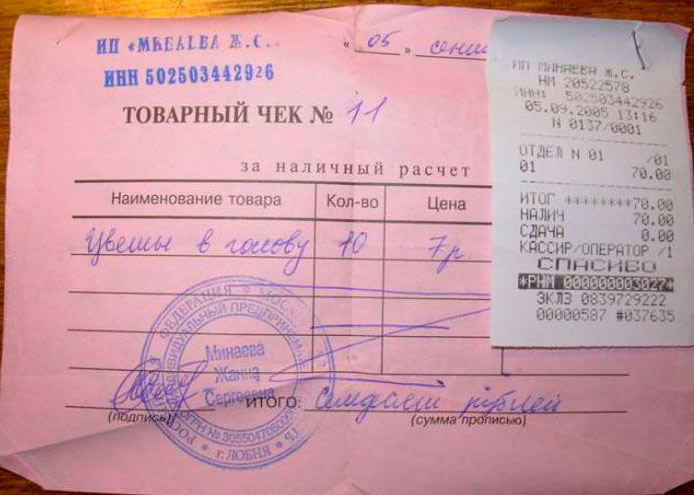 ИП «МИНАЕВА Ж.С.
ИНН 502503442926
« 05 » сен
ТОВАРНЫЙ ЧЕК № 11
за наличный расчет
Наименование товара Кол-во Цена
Цветы в голову 10 7р
ИТОГО: Семьдесят рублей
(подпись) (сумма прописью)
ФЕДЕРАЦИЯ * МОСКО
ИНДИВИДУАЛЬНЫЙ ПРЕДПРИНИМА
Минаева
Жанна
Сергеевна
г. ЛОБНЯ
ИП МИНАЕВА Ж.С.
НМ 20522578
ИНН: 502503442926
05.09.2005 13:16
N 0137/0001
ОТДЕЛ N 01 /01
01 70.00
ИТОГ ********70.00
НАЛИЧ 70.00
СДАЧА 0.00
КАССИР/ОПЕРАТОР /1
СПАСИБО
*РНМ 000000003027*
ЭКЛЗ 0839729222
00000587 #037635